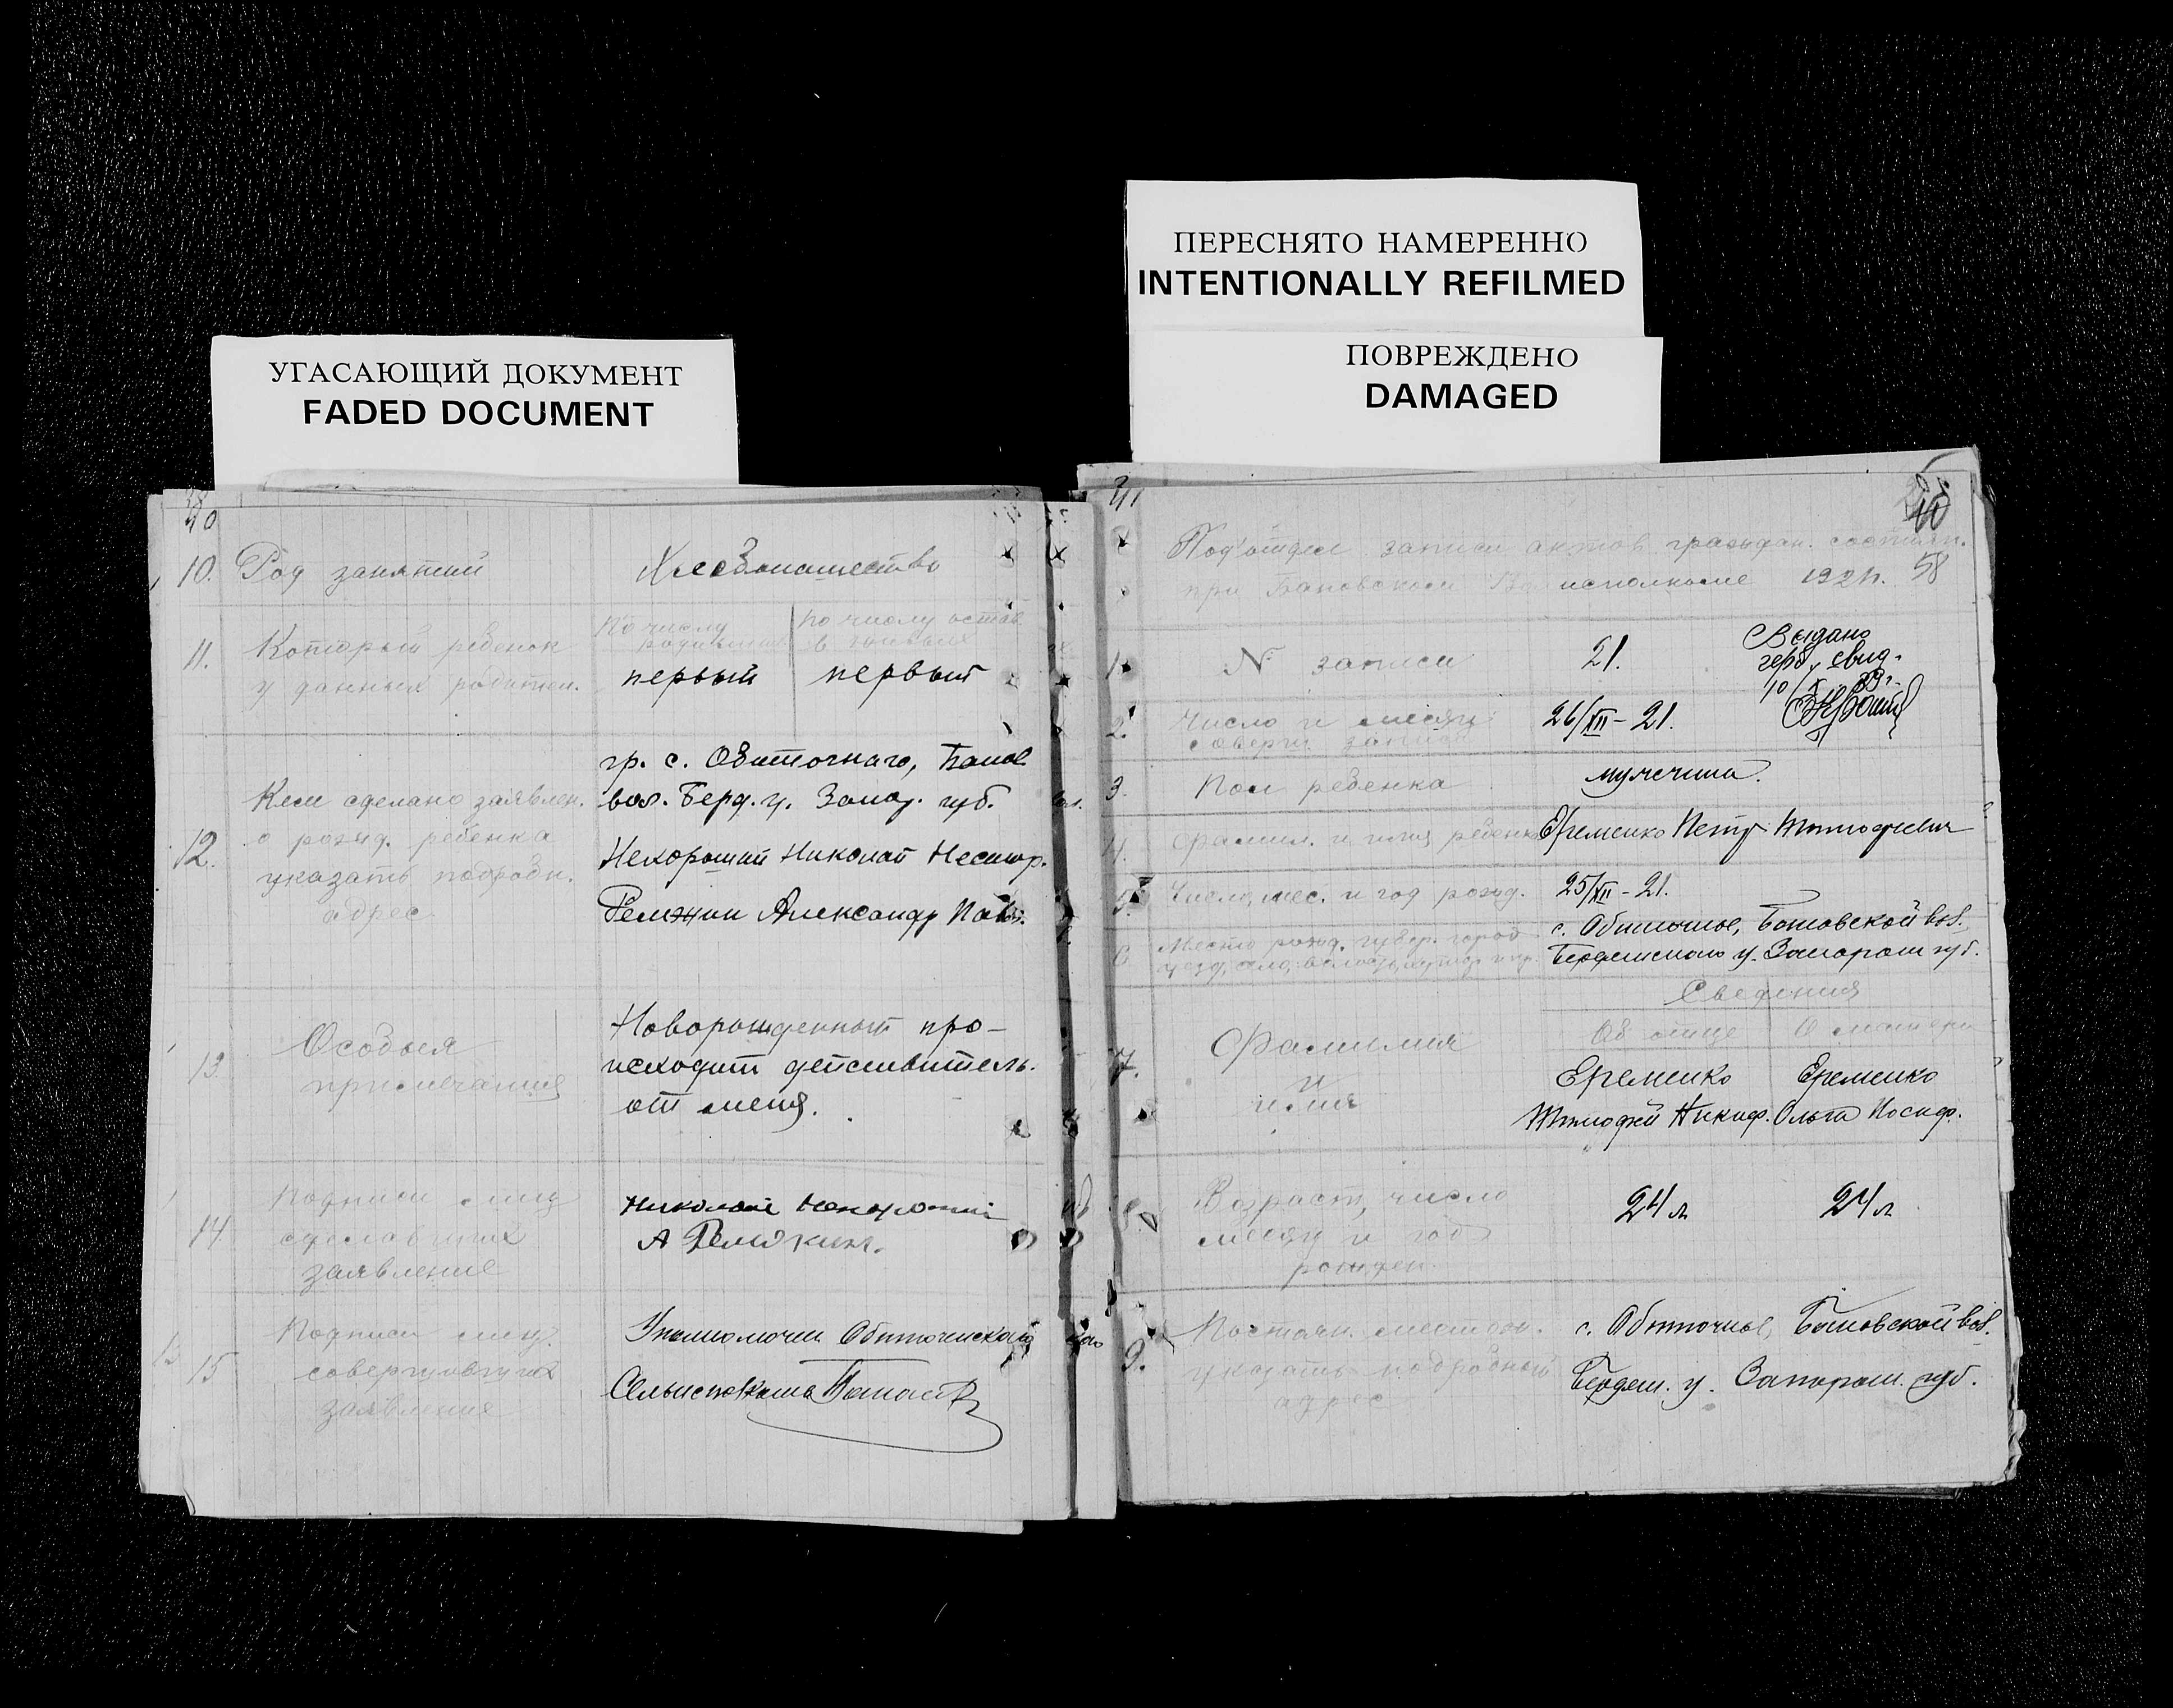 УГАСАЮЩИЙ ДОКУМЕНТ
FADED DOCUMENT
ПЕРЕСНЯТО НАМЕРЕННО
INTENTIONALLY REFILMED
ПОВРЕЖДЕНО
DAMAGED
40
10. Род занятий Хлебопашество
11. Который ребенок у данных родител.
По числу родившихся
по числу остав. в живых
первый первый
12. Кем сделано заявлен.
о рожд. ребенка
указать подробн.
адрес
гр. с. Обиточнаго, Банов
вол. Берд. у. Запор. губ.
Нехороший Николай Нестор.
Ремжин Александр Пав.
13. Особыя
примечания
Новорожденный про-
исходит действитель.
от меня.
14. Подписи лиц
сделавших
заявление
Николай Нехороший
А Ремжин.
15 Подписи лиц
совершивших
заявления
Уполномочен Обиточенской
Сельисполкома
41
40
58
Подотдел записи актов граждан. состоян.
при Бановском исполкоме 192 г.
1. № записи 21.
Выдано
герб. свид.
2. Число и месяц
соверш. записи
26/XII-21.
3. Пол ребенка мужчина.
4. Фамил. и имя ребенка Еременко Петр Тимофеевич
5. Число, мес. и год рожд. 25/XII-21.
6. Место рожд. губер. город
уезд, село, волость
с. Обиточное, Бановской вол.
Бердянского у. Запорож губ.
Сведения
Об отце О матери
7. Фамилия
и
имя
Еременко Еременко
Тимофей Никиф. Ольга Иосиф.
8. Возраст, число
месяц и год
рожден.
24 л 24 л
9. Постоян. мест
указать подробный
адрес
с. Обиточное, Бановской вол.
Бердян. у. Запорож. губ.